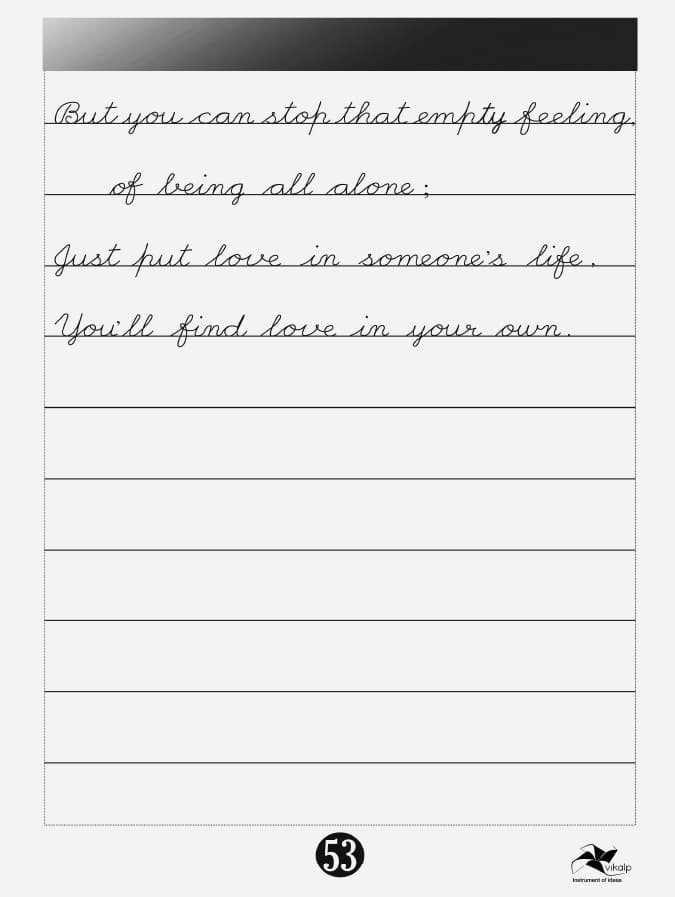 But you can stop that empty feeling,
of being all alone;
Just put love in someone's life,
You'll find love in your own.
53
vikalp
instrument of ideas